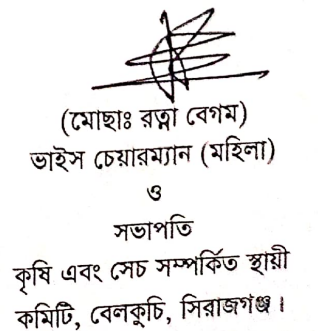 (মোছাঃ রত্না বেগম)
ভাইস চেয়ারম্যান (মহিলা)
ও
সভাপতি
কৃষি এবং সেচ সম্পর্কিত স্থায়ী
কমিটি, বেলকুচি, সিরাজগঞ্জ।